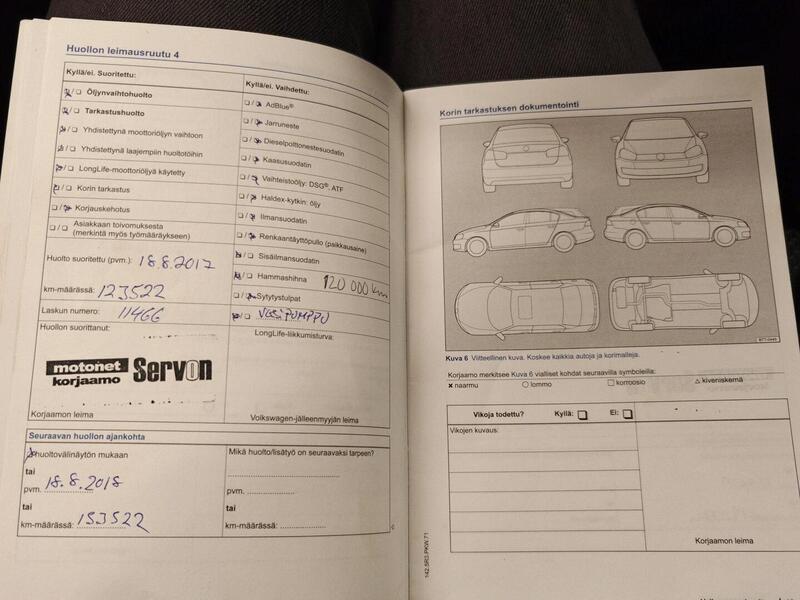 Huollon leimausruutu 4
Kyllä/ei. Suoritettu:
☒/☐ Öljynvaihtohuolto
☒/☐ Tarkastushuolto
☒/☐ Yhdistettynä moottoriöljyn vaihtoon
☒/☐ Yhdistettynä laajempiin huoltotöihin
☒/☐ LongLife-moottoriöljyä käytetty
☒/☐ Korin tarkastus
☐/☒ Korjauskehotus
☐/☐ Asiakkaan toivomuksesta
(merkintä myös työmääräykseen)
Huolto suoritettu (pvm.): 18.8.2017
km-määrässä: 123522
Laskun numero: 11466
Huollon suorittanut:
motonet
korjaamo
Servon
Korjaamon leima
Kyllä/ei. Vaihdettu:
☐/☒ AdBlue®
☐/☒ Jarruneste
☐/☒ Dieselpolttonestesuodatin
☐/☒ Kaasusuodatin
☐/☒ Vaihteistoöljy: DSG®, ATF
☐/☒ Haldex-kytkin: öljy
☐/☒ Ilmansuodatin
☐/☒ Renkaantäyttöpullo (paikkausaine)
☒/☐ Sisäilmansuodatin
☒/☐ Hammashihna 120 000 km
☐/☒ Sytytystulpat
☒/☐ VESIPUMPPU
LongLife-liikkumisturva:
Volkswagen-jälleenmyyjän leima
Seuraavan huollon ajankohta
☒ huoltovälinäytön mukaan
tai
pvm. 18.8.2018
tai
km-määrässä: 153522
Mikä huolto/lisätyö on seuraavaksi tarpeen?
pvm.
km-määrässä:
Korin tarkastuksen dokumentointi
B7T-0449
Kuva 6 Viitteellinen kuva. Koskee kaikkia autoja ja korimalleja.
Korjaamo merkitsee Kuva 6 vialliset kohdat seuraavilla symboleilla:
✕ naarmu ○ lommo □ korroosio △ kiveniskemä
Vikoja todettu? Kyllä: ☐ Ei: ☐
Vikojen kuvaus:
Korjaamon leima
142.5R3.PKW.71